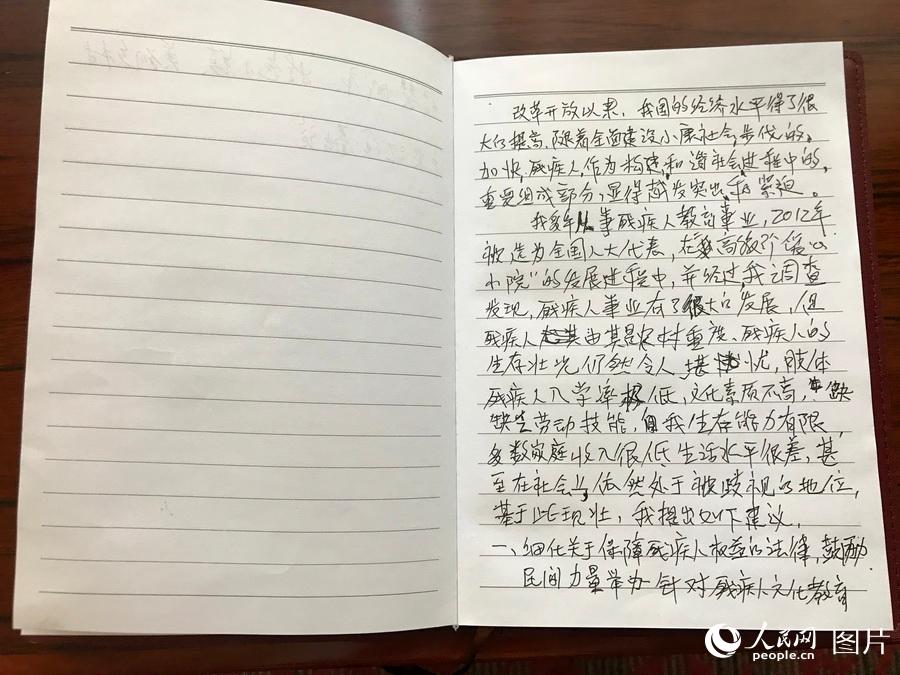 改革开放以来，我国的经济水平得了很
大的提高，随着全面建设小康社会步伐的
加快，残疾人作为构建和谐社会进程中的
重要组成部分，显得越发突出和紧迫。
我多年从事残疾人教育事业，2012年
被选为全国人大代表，在高级阶俊"心
小院"的发展进程中，并经过我调查
发现，残疾人事业有了很大的发展，但
残疾人尤其是农村重度残疾人的
生存状况仍然令人堪忧，肢体
残疾人入学率极低，文化素质不高，缺
缺失劳动技能，自我生存能力有限，
多数家庭收入很低，生活水平很差，甚
至在社会上依然处于被歧视的地位，
基于此现状，我提出如下建议。
一、细化关于保障残疾人权益的法律，鼓励
民间力量举办针对残疾人文化教育
人民网 图片
people.cn